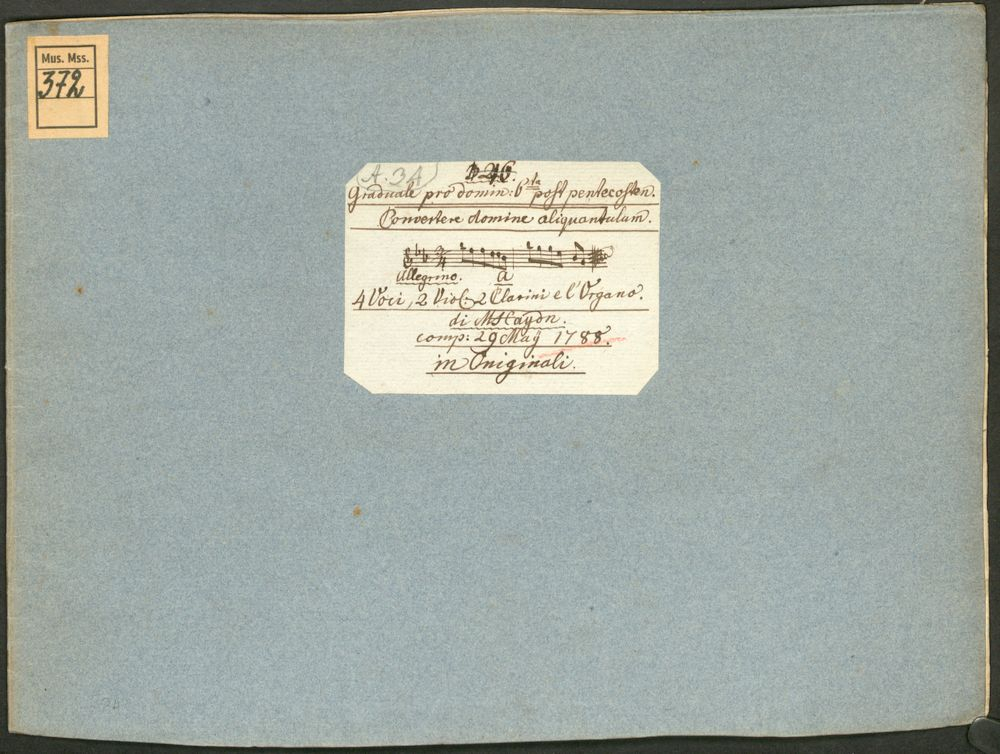 Mus. Mss.
372
A. 34
Graduale pro domin: 6ta post pentecosten.
Convertere domine aliquantulum.
3/4
Allegrino.
a
4 Voci, 2 Viol: 2 Clarini e l'Organo.
di MHaydn.
comp: 29 May 1788.
in Originali.
34